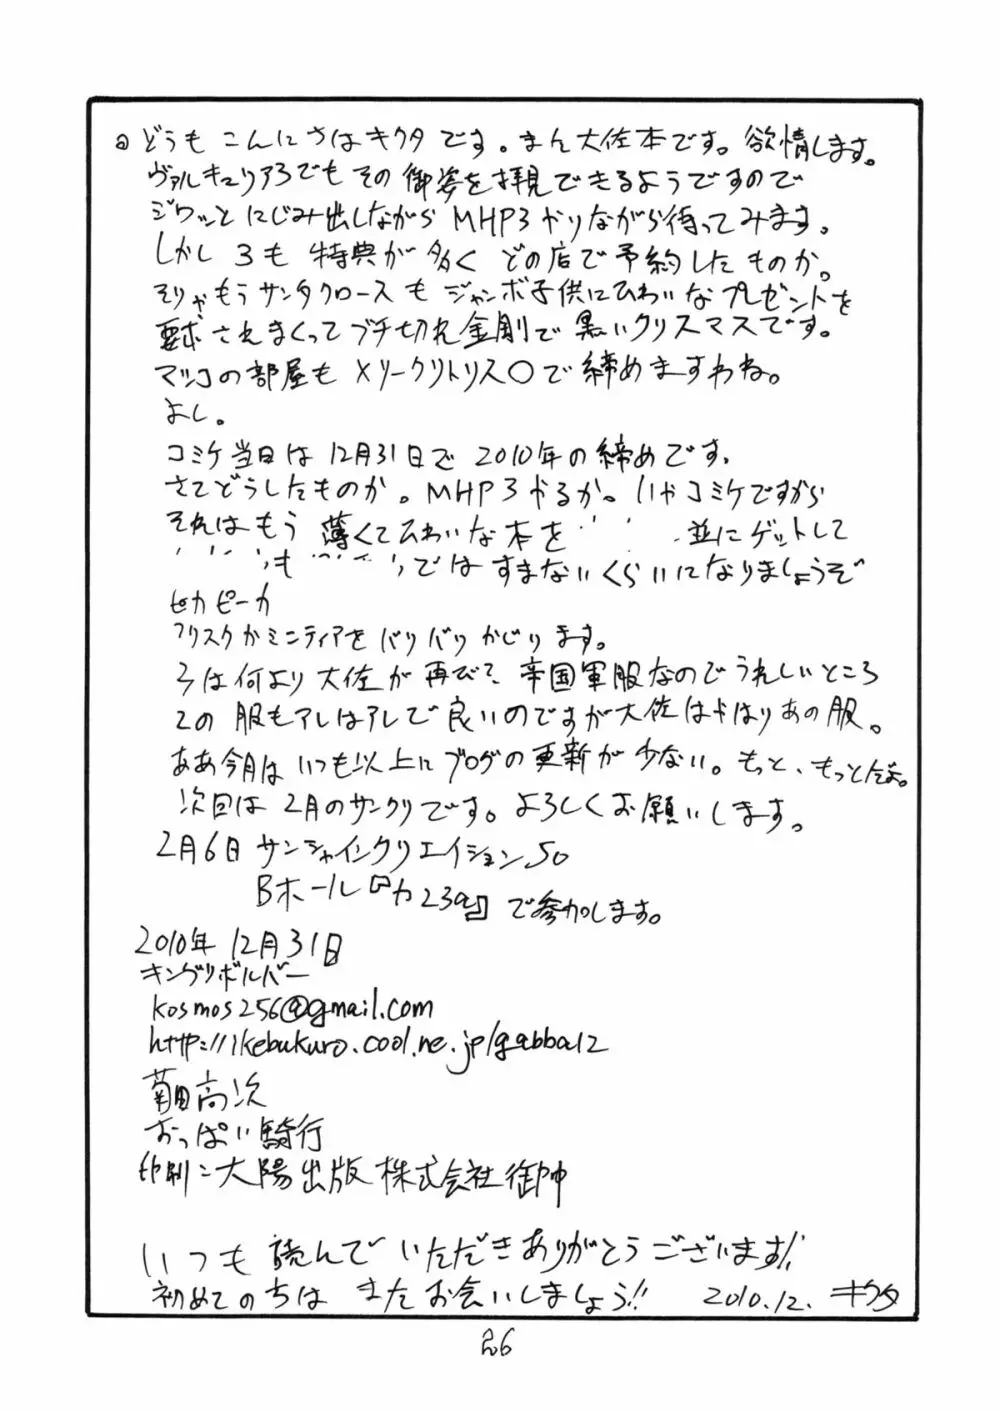 どうも こんにちはキクタです。まん大佐本です。欲情します。
ヴァルキュリア3でもその御姿を拝見できるようですので
ジワッとにじみ出しながらMHP3やりながら待ってみます。
しかし3も特典が多くどの店で予約したものか。
そりゃもうサンタクロースもジャンボ子供にひわいなプレゼントを
要求されまくってブチ切れ金剛で黒いクリスマスです。
マツコの部屋もメリークリトリス○で締めますわね。
よし。
コミケ当日は12月31日で2010年の締めです。
さてどうしたものか。MHP3やるか。いやコミケですから
それはもう薄くてひわいな本を 並にゲットして
も ではすまないくらいになりましょうぞ
ピカピーカ
フリスクかミンティアをバリバリかじります。
3は何より大佐が再びで、帝国軍服なのでうれしいところ
2の服もアレはアレで良いのですが大佐はやはりあの服。
ああ今月はいつも以上にブログの更新が少ない。もっと、もっとだよ。
次回は2月のサンクリです。よろしくお願いします。
2月6日 サンシャインクリエイション50
Bホール『カ23a』で参加します。
2010年12月31日
キングリボルバー
kosmos256@gmail.com
http://ikebukuro.cool.ne.jp/gabba12
菊田高次
おっぱい騎行
印刷:大陽出版株式会社御中
いつも読んでいただきありがとうございます!!
初めてのちは またお会いしましょう!! 2010.12. キクタ
26